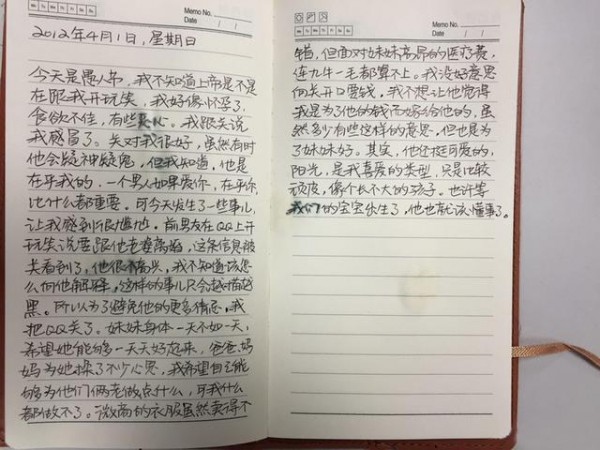 Memo No.
Mo Tu We Th Fr Sa Su
Date / /
2012年4月1日,星期日
今天是愚人节,我不知道上帝是不是
在跟我开玩笑,我好像怀孕了,
食欲不佳,有些恶心。我跟关说
我感冒了。关对我很好,虽然有时
他会疑神疑鬼,但我知道,他是
在乎我的,一个男人如果爱你,在乎你
比什么都重要。可今天发生了一些事儿,
让我感到很尴尬。前男友在QQ上开
玩笑说要跟他老婆离婚,这条信息被
关看到了,他很不高兴,我不知道该怎
么向他解释,这样的事儿只会越描越
黑。所以为了避免他的更多猜忌,我
把QQ关了。妹妹身体一天不如一天,
希望她能够一天天好起来,爸爸妈
妈为她操了不少心思,我希望自己能
够为他们俩老做点什么,可我什么
都做不了。微商的衣服虽然卖得不
Memo No.
Date / /
错,但面对妹妹高昂的医疗费,
连九牛一毛都算不上。我没好意思
向关开口要钱,我不想让他觉得
我是为了他的钱而嫁给他的,虽
然多少有些这样的意思,但也是为
了妹妹好。其实,他还挺可爱的,
阳光,是我喜爱的类型,只是比较
顽皮,像个长不大的孩子。也许等
我们的宝宝出生了,他也就该懂事了。